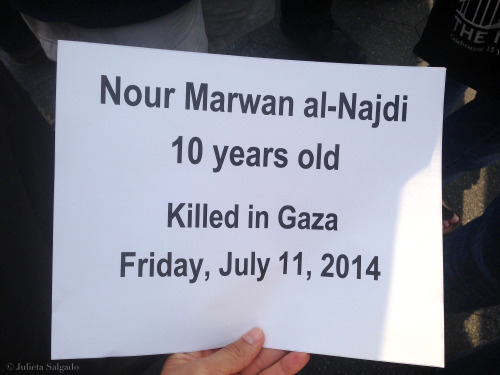 THE
Nour Marwan al-Najdi
10 years old
Killed in Gaza
Friday, July 11, 2014
© Julieta Salgado